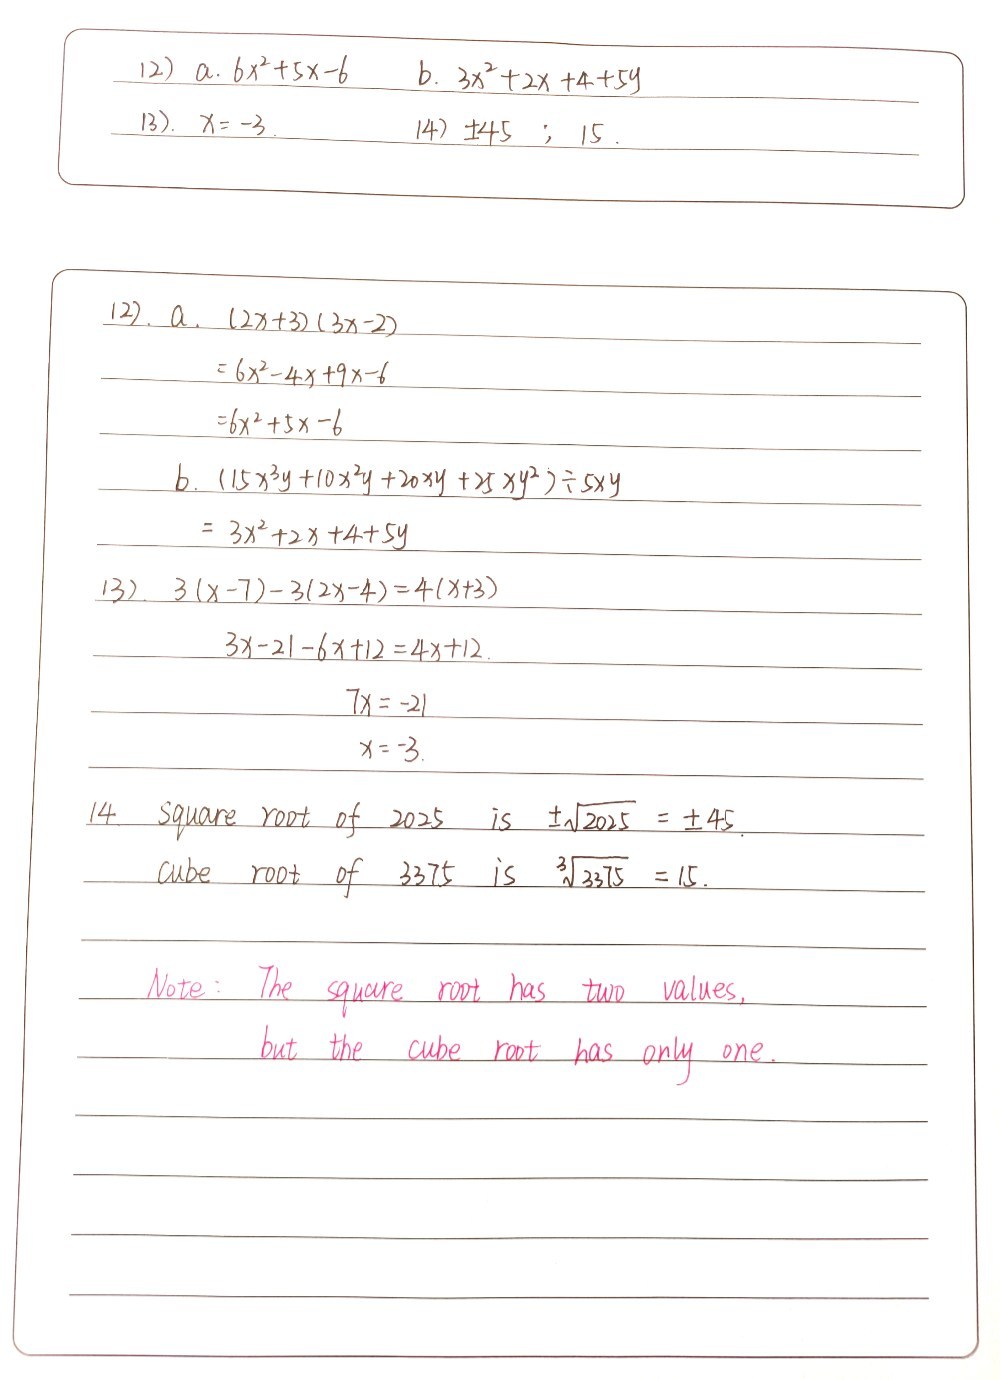 12) a. 6x²+5x-6 b. 3x²+2x+4+5y
13). x=-3. 14) ±45 ; 15.
12). a. (2x+3)(3x-2)
=6x²-4x+9x-6
=6x²+5x-6
b. (15x³y+10x²y+20xy+25xy²)÷5xy
= 3x²+2x+4+5y
13) 3(x-7)-3(2x-4)=4(x+3)
3x-21-6x+12=4x+12.
7x=-21
x=-3.
14 square root of 2025 is ±√2025 = ±45.
cube root of 3375 is ³√3375 =15.
Note: The square root has two values,
but the cube root has only one.